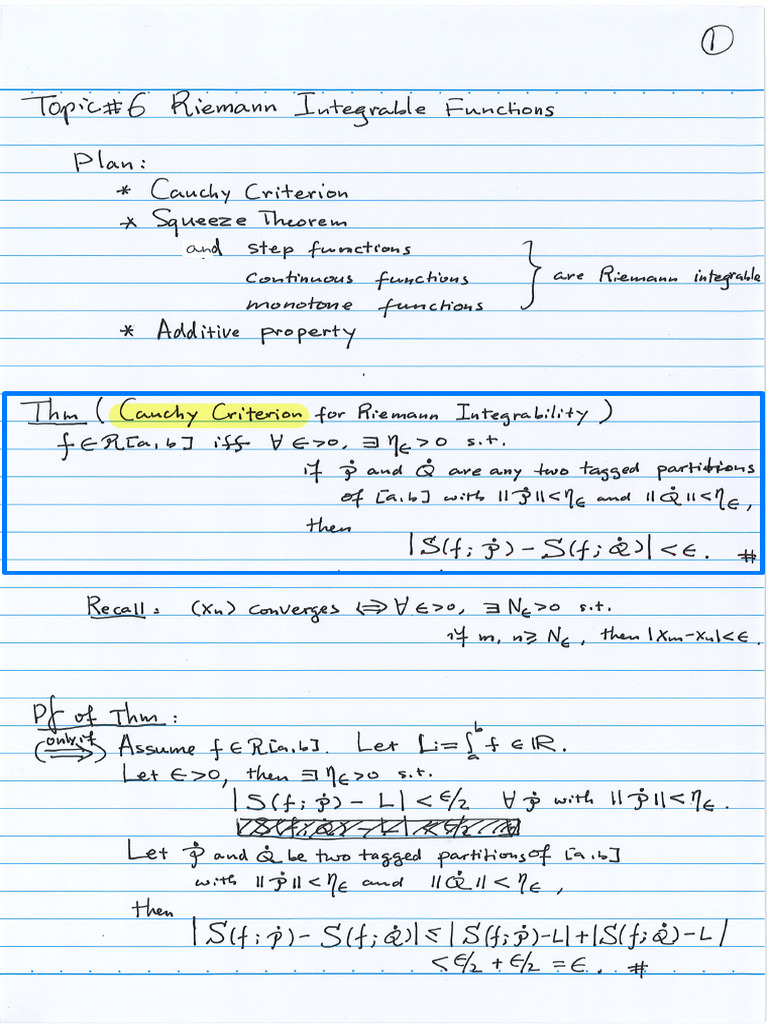 ①
Topic#6 Riemann Integrable Functions
Plan:
* Cauchy Criterion
* Squeeze Theorem
and step functions
continuous functions } are Riemann integrable
monotone functions
* Additive property
Thm (Cauchy Criterion for Riemann Integrability)
f∈R[a,b] iff ∀ ϵ>0, ∃ η_ϵ>0 s.t.
if Ṗ and Q̇ are any two tagged partitions
of [a,b] with ||Ṗ||<η_ϵ and ||Q̇||<η_ϵ,
then
|S(f;Ṗ)-S(f;Q̇)|<ϵ. #
Recall: (xn) converges ⟺ ∀ ϵ>0, ∃ N_ϵ>0 s.t.
if m, n≥N_ϵ, then |xm-xn|<ϵ.
Pf of Thm:
(only if ⟹) Assume f∈R[a,b]. Let L:=∫_a^b f ∈ℝ.
Let ϵ>0, then ∃ η_ϵ>0 s.t.
|S(f;Ṗ)-L|<ϵ/2 ∀ Ṗ with ||Ṗ||<η_ϵ.
Let Ṗ and Q̇ be two tagged partitions of [a,b]
with ||Ṗ||<η_ϵ and ||Q̇||<η_ϵ,
then
|S(f;Ṗ)-S(f;Q̇)|≤|S(f;Ṗ)-L|+|S(f;Q̇)-L|
<ϵ/2+ϵ/2=ϵ. #